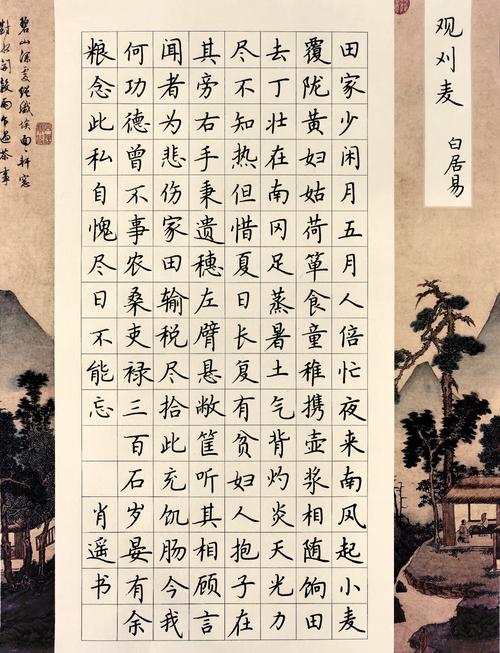 观刈麦
白居易
田家少闲月五月人倍忙夜来南风起小麦
覆陇黄妇姑荷箪食童稚携壶浆相随饷田
去丁壮在南冈足蒸暑土气背灼炎天光力
尽不知热但惜夏日长复有贫妇人抱子在
其旁右手秉遗穗左臂悬敝筐听其相顾言
闻者为悲伤家田输税尽拾此充饥肠今我
何功德曾不事农桑吏禄三百石岁晏有余
粮念此私自愧尽日不能忘
肖遥书
碧山深處絶纖埃面面軒窓
對水開穀雨乍過茶事